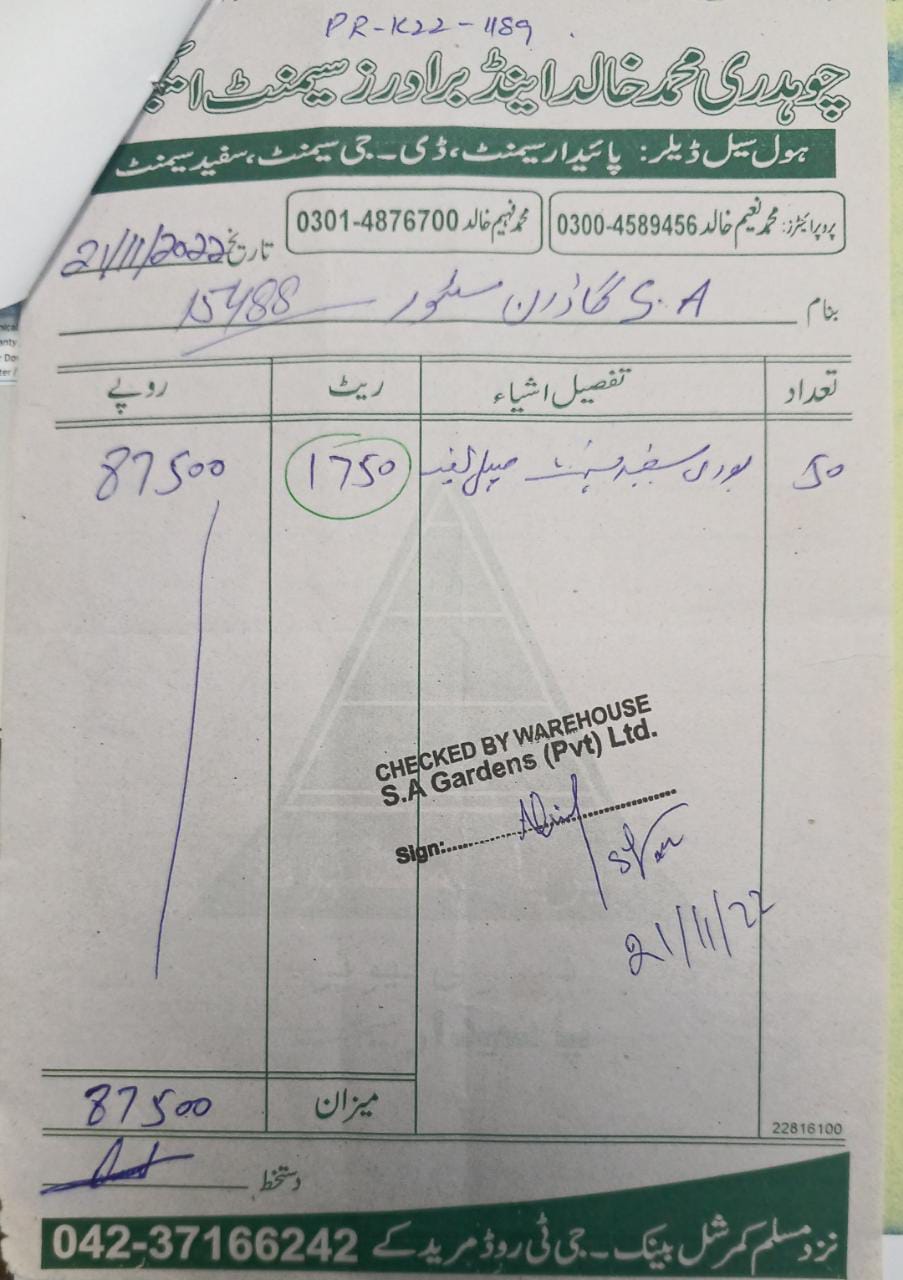 PR-K22-1189
چوہدری محمد خالد اینڈ برادرز سیمنٹ
ہول سیل ڈیلر: پائیدار سیمنٹ، ڈی۔جی سیمنٹ، سفید سیمنٹ
پروپرائیٹرز: محمد نعیم خالد 0300-4589456 محمد فہیم خالد 0301-4876700
تاریخ 21/11/2022
بنام S.A گارڈن سٹور 15488
تعداد تفصیل اشیاء ریٹ روپے
50 بوری سفید سیمنٹ میپل لیف 1750 87500
CHECKED BY WAREHOUSE
S.A Gardens (Pvt) Ltd.
Sign:
21/11/22
میزان 87500
22816100
دستخط
نزد مسلم کمرشل بینک۔ جی ٹی روڈ مریدکے 042-37166242